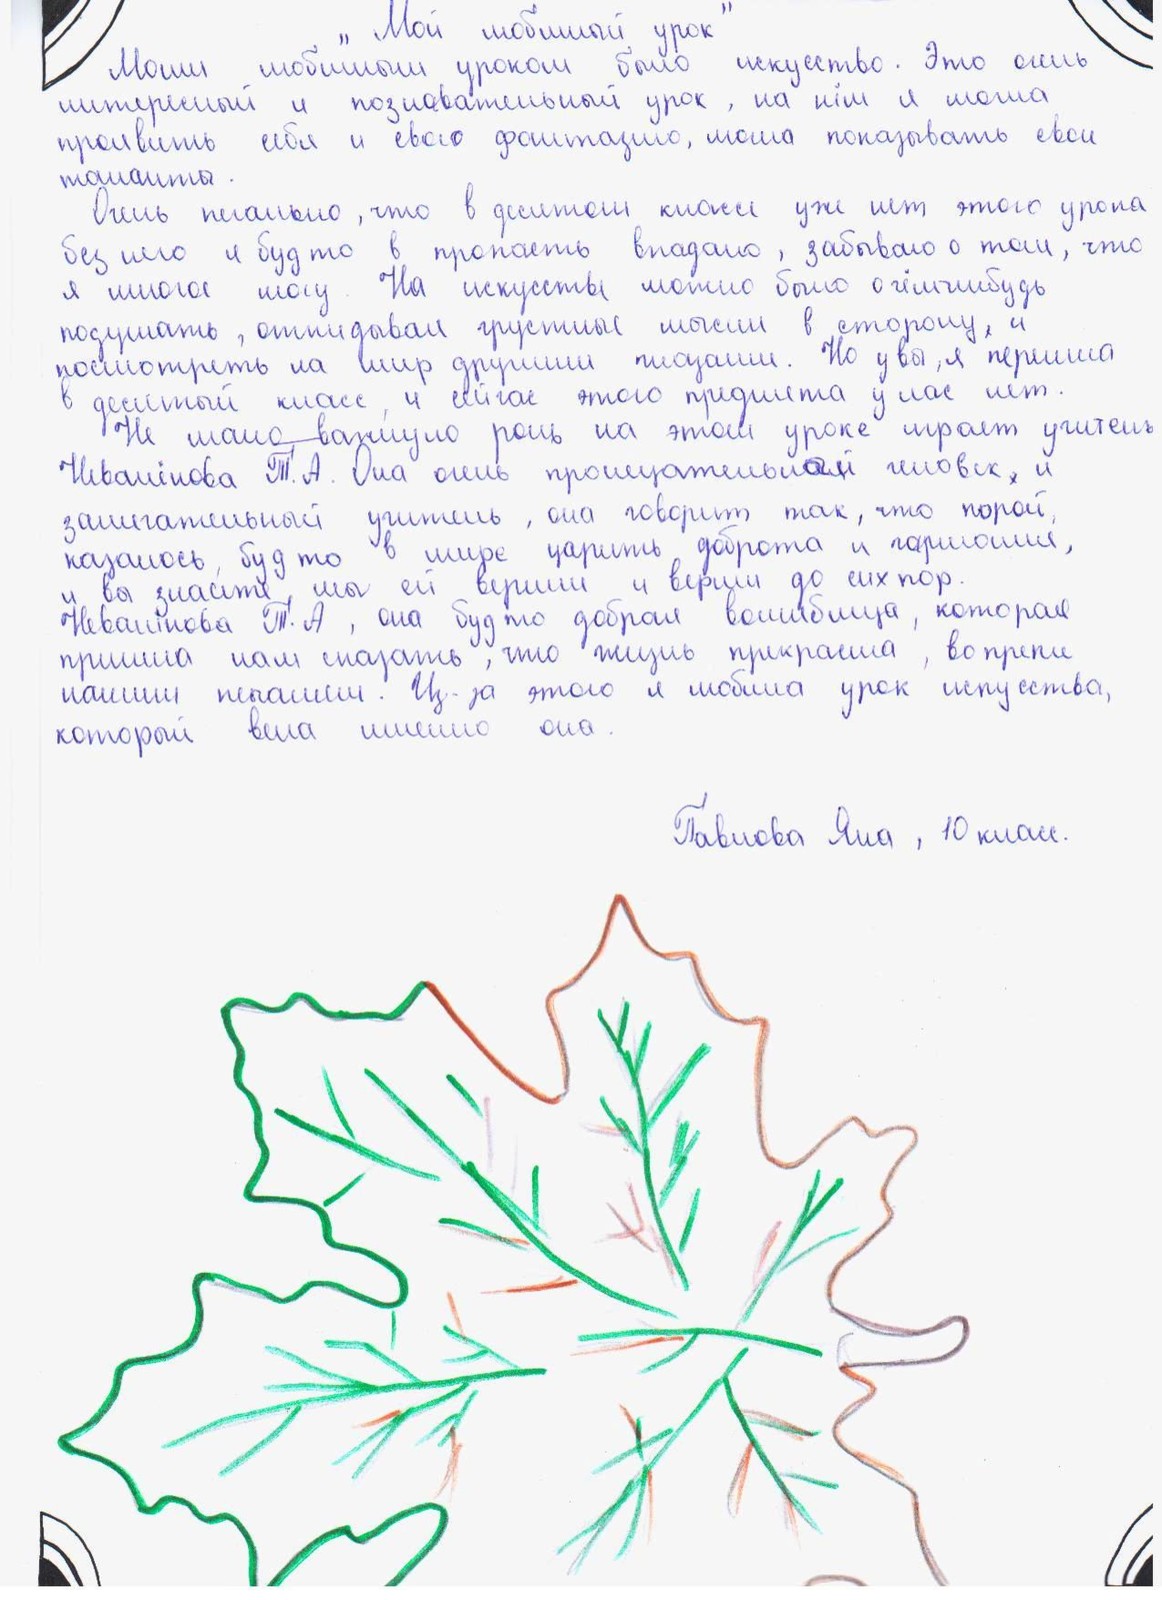 „Мой любимый урок"
Моим любимым уроком было искусство. Это очень
интересный и познавательный урок, на нём я могла
проявить себя и свою фантазию, могла показывать свои
таланты.
Очень печально, что в десятом классе уже нет этого урока
без него я будто в пропасть впадаю, забываю о том, что
я многое могу. На искусстве можно было о чём-нибудь
подумать, откидывая грустные мысли в сторону, и
посмотреть на мир другими глазами. Но увы, я перешла
в десятый класс, и сейчас этого предмета у нас нет.
Не мало важную роль на этом уроке играет учитель
Т.А. Она очень человек, и
замечательный учитель, она говорит так, что порой,
казалось, будто в мире царить доброта и гармония,
и вы знаете, мы ей верили и верим до сих пор.
Т.А, она будто добрая волшебница, которая
пришла нам сказать, что жизнь прекрасна, вопреки
нашим печалям. Из-за этого я любила урок искусства,
который вела именно она.
Павлова Яна, 10 класс.